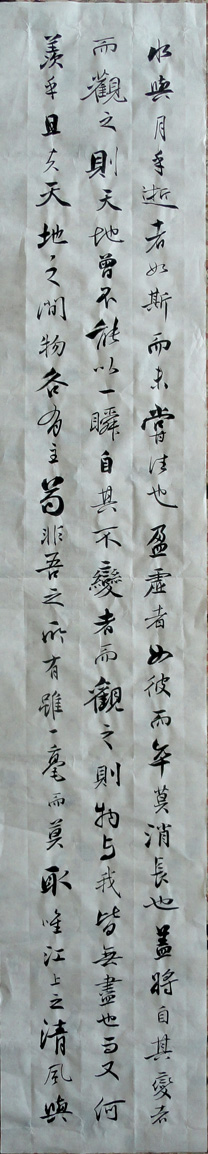 水與月乎逝者如斯而未嘗往也盈虛者如彼而卒莫消長也蓋將自其變者
而觀之則天地曾不能以一瞬自其不變者而觀之則物与我皆無盡也而又何
羨乎且夫天地之間物各有主苟非吾之所有雖一毫而莫取唯江上之清風與